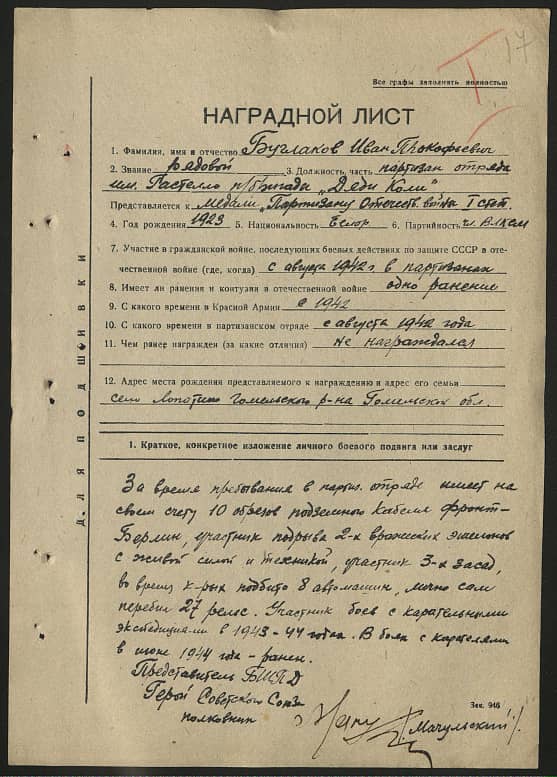 17
I.
Все графы заполнять полностью
НАГРАДНОЙ ЛИСТ
1. Фамилия, имя и отчество Буглаков Иван Прокофьевич
2. Звание рядовой 3. Должность, часть партизан отряда
им. Гастелло п/бригады „Дяди Коли"
Представляется к медали „Партизану Отечеств. войны I степ.
4. Год рождения 1923 5. Национальность белор 6. Партийность чл. ВЛКСМ
7. Участие в гражданской войне, последующих боевых действиях по защите СССР в оте-
чественной войне (где, когда) с августа 1942 г в партизанах
8. Имеет ли ранения и контузии в отечественной войне одно ранение
9. С какого времени в Красной Армии с 1942
10. С какого времени в партизанском отряде с августа 1942 года
11. Чем ранее награжден (за какие отличия) не награждался
12. Адрес места рождения представляемого к награждению и адрес его семьи
село Лопатино Гомельского р-на Гомельск обл.
ДЛЯ ПОДШИВКИ
1. Краткое, конкретное изложение личного боевого подвига или заслуг
За время пребывания в партиз. отряде имеет на
своем счету 10 обрезов подземного кабеля фронт-
Берлин, участник подрыва 2-х вражеских эшелонов
с живой силой и техникой, участник 3-х засад,
во время к-рых подбито 8 автомашин, лично сам
перебил 27 рельс. Участник боев с карательными
экспедициями в 1943-44 годах. В боях с карателями
в июне 1944 года - ранен.
Представитель БШПД
Герой Советского Союза
полковник
(Мачульский)
Зак. 946